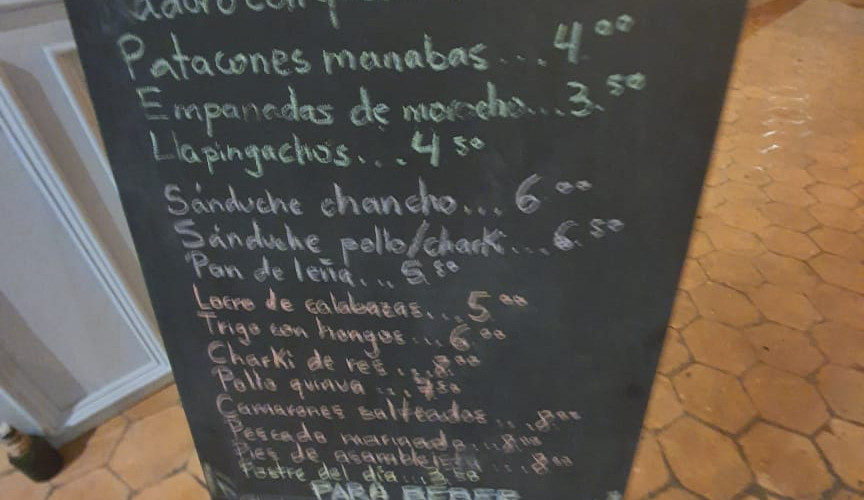 Patacones manabas... 4.00
Empanadas de morocho... 3.50
Llapingachos... 4 50
Sánduche chancho... 6 00
Sánduche pollo/chark... 6.50
Pan de leña... 5 50
Locro de calabazas... 5 00
Trigo con hongos... 6.00
Charki de res... 8.00
Pollo quinua... 7 50
Camarones salteados... 8.00
Pescado marinado... 8.00
de ... 8.00
Postre del día... 3.50
PARA BEBER